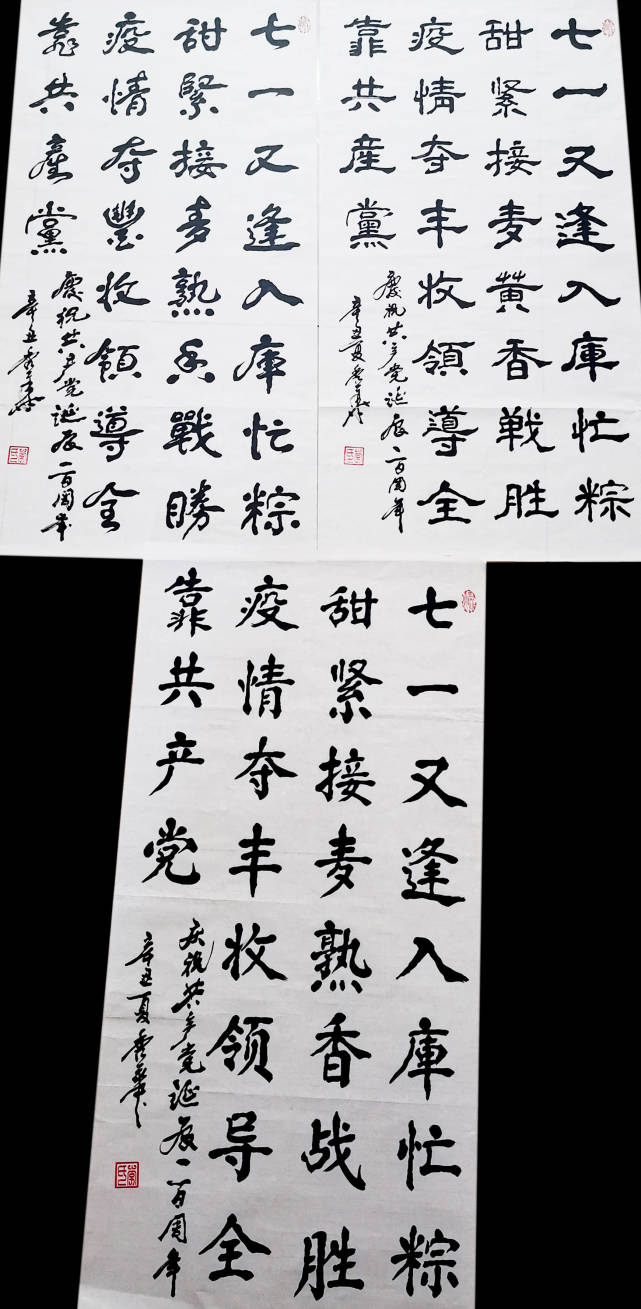 七一又逢入庫忙粽
甜紧接麦黄香戦胜
疫情夺丰收領導全
靠共産黨
慶祝共产党诞辰一百周年
辛丑夏
七一又逢入庫忙粽
甜緊接麦熟香戰勝
疫情夺豐收領導全
靠共產黨
慶祝共产党诞辰一百周年
辛丑
七一又逢入庫忙粽
甜紧接麦熟香战胜
疫情夺丰收领导全
靠共产党
庆祝共产党诞辰一百周年
辛丑夏